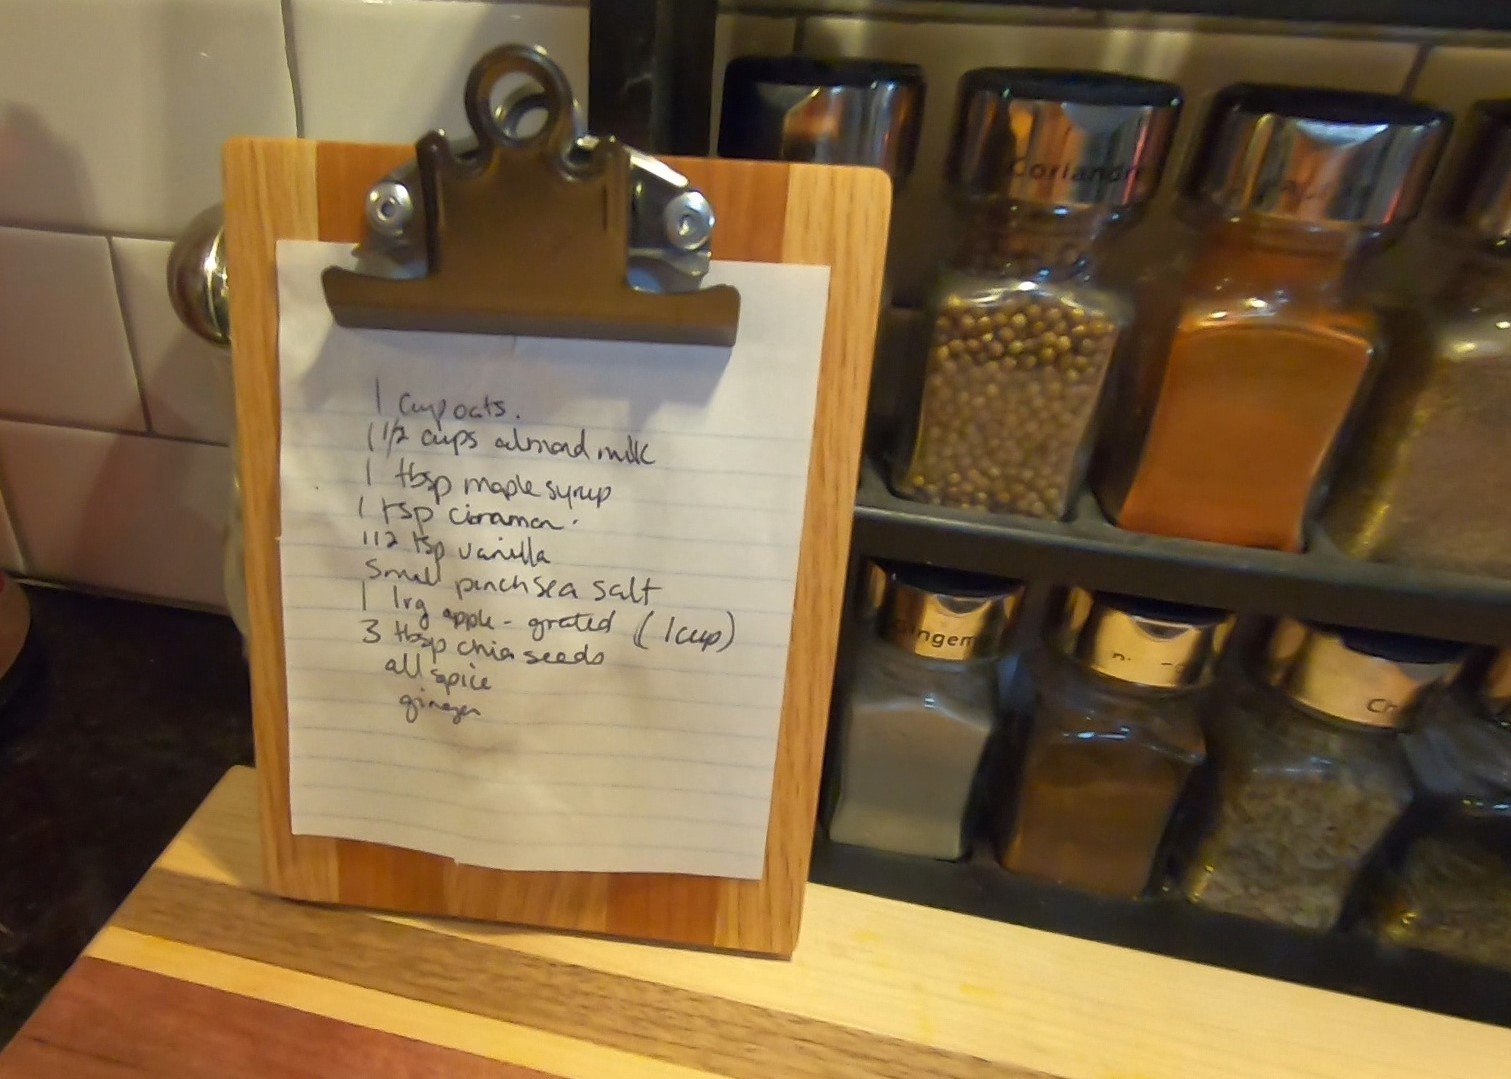 1 cup oats.
1 1/2 cups almond milk
1 tbsp maple syrup
1 tsp cinnamon
1/2 tsp vanilla
Small pinch sea salt
1 lrg apple - grated (1 cup)
3 tbsp chia seeds
all spice
ginger
Coriand
Ginger
Ch